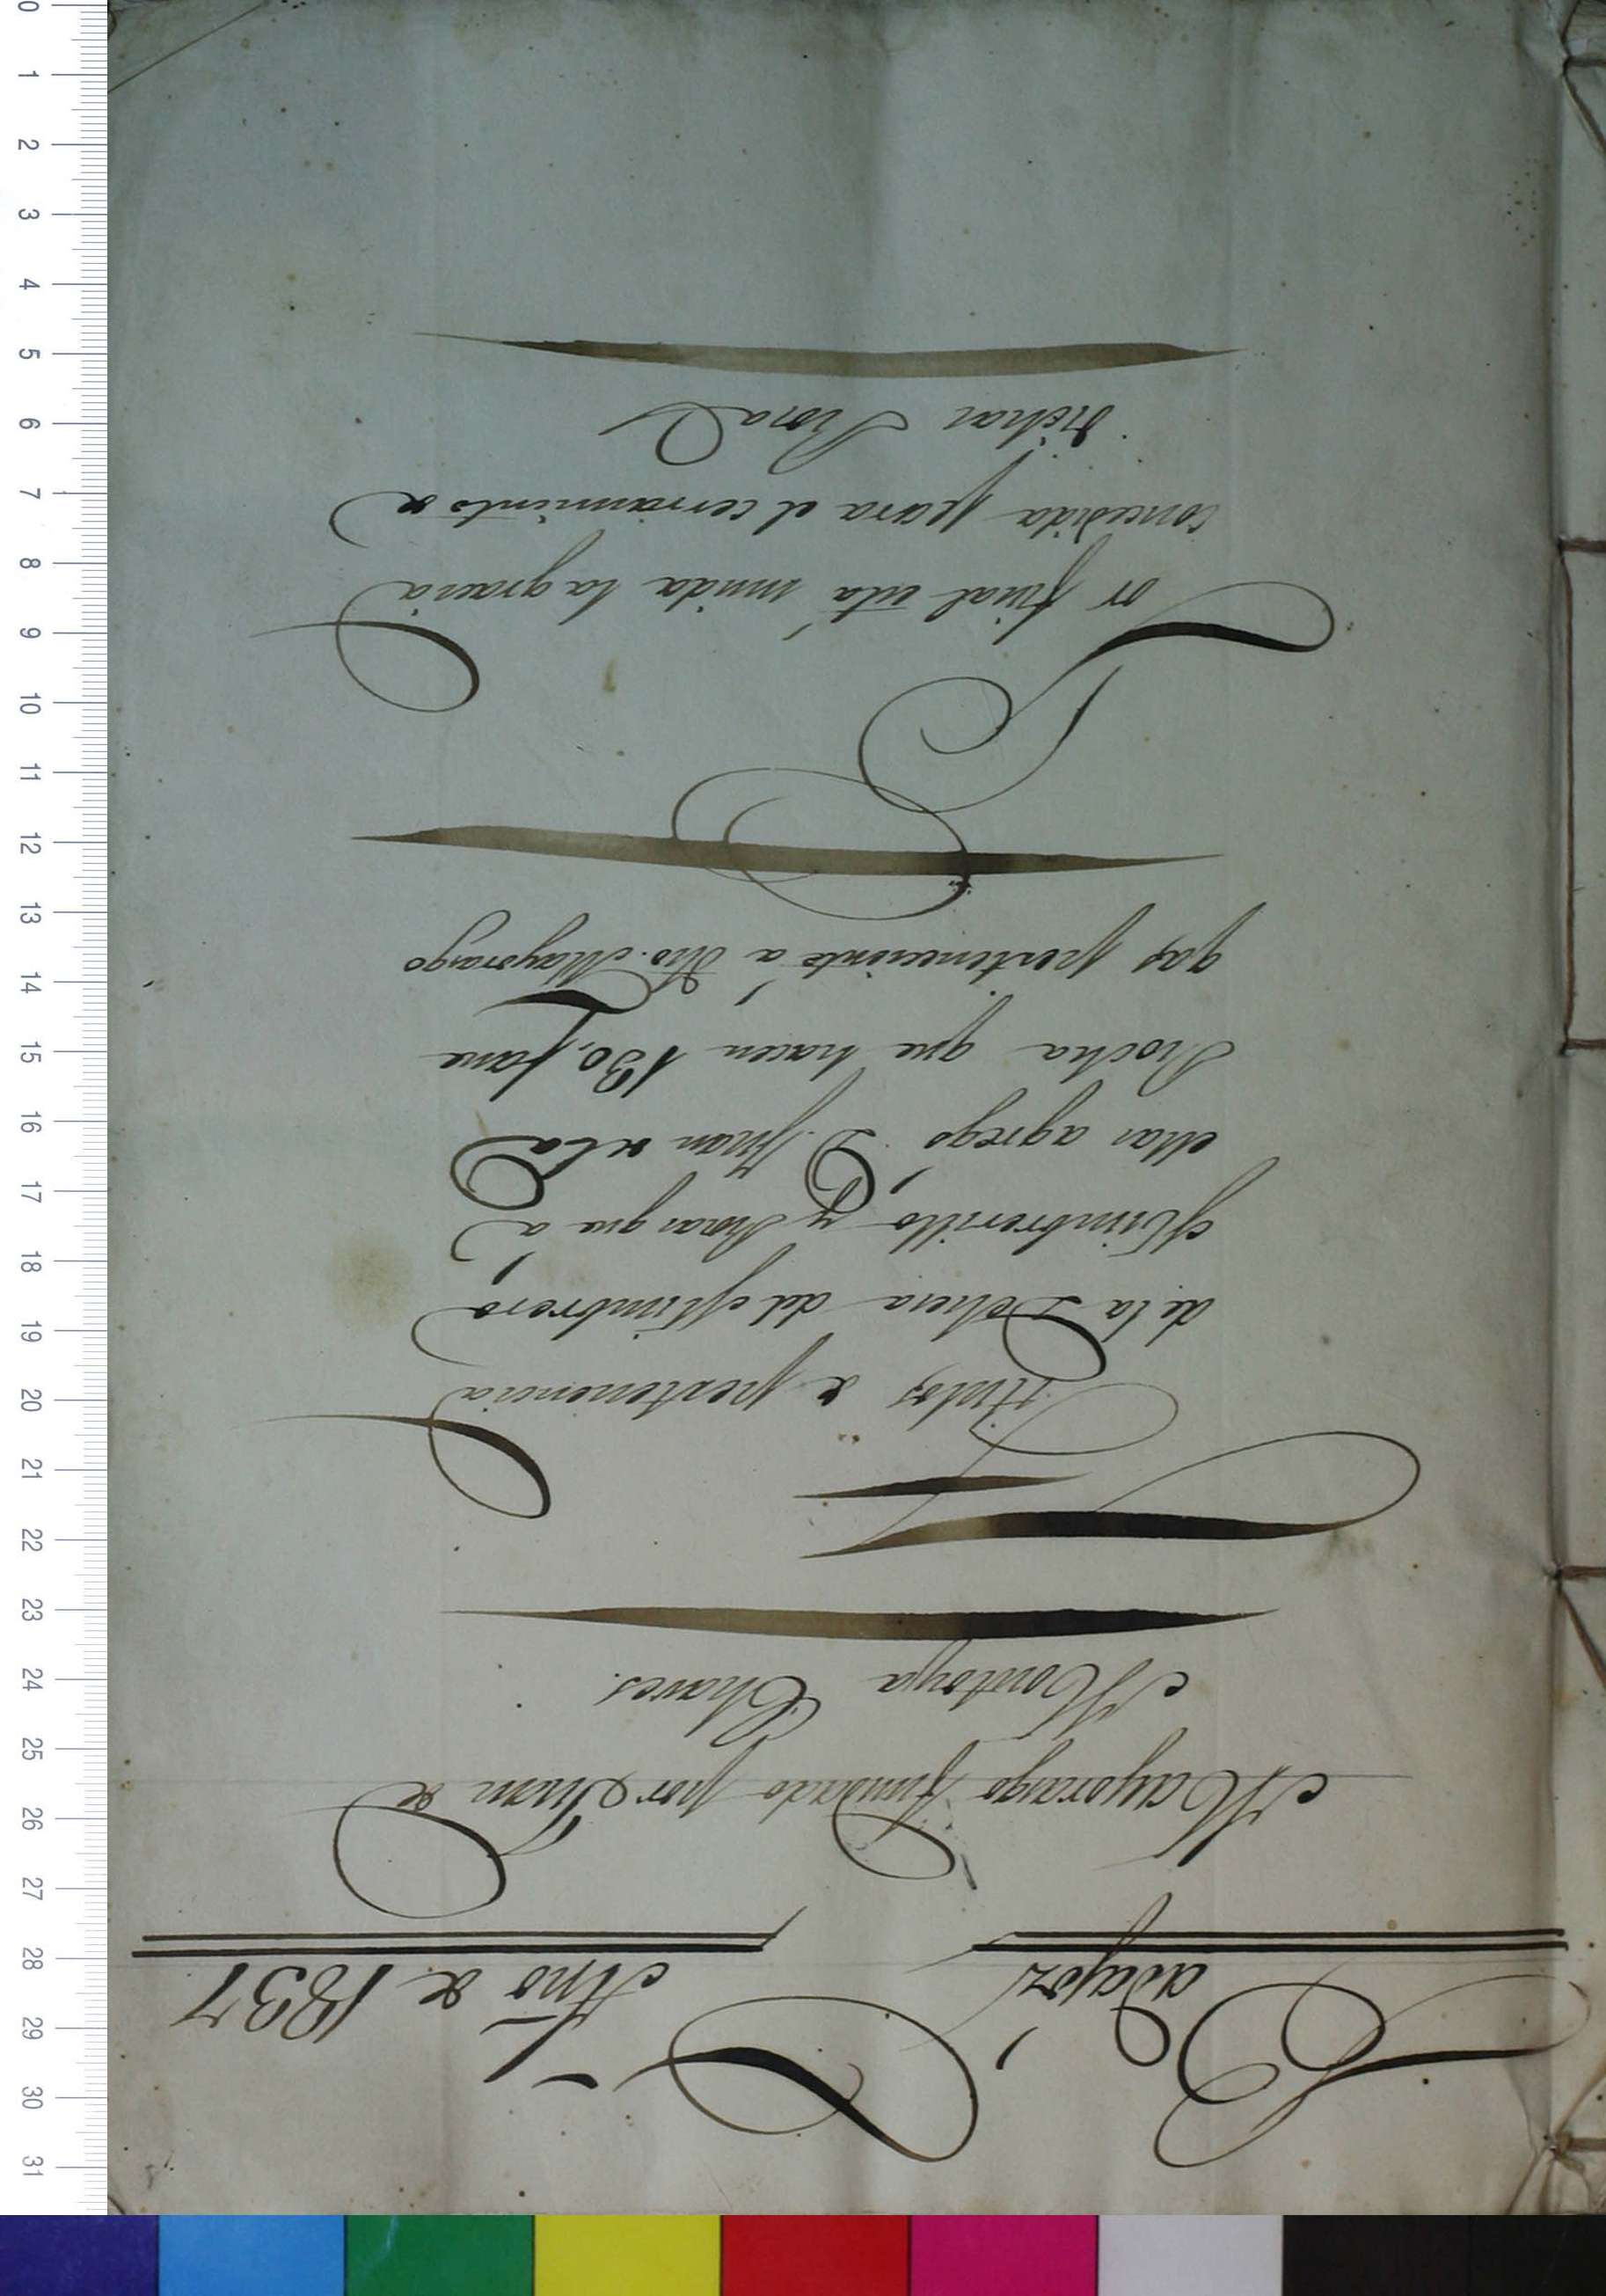 Badajoz
Año de 1837
Mayorazgo fundado por Juan de
Montoya Chaves.
Titulos de pertenencia
de la Dehesa del Mimbrero
Mimbrerillo y que á
ellas agregó D. Juan de la
Rocha que hacen 130, fane
gas perteneciente á dho. Mayorazgo
Por final está unida la gracia
concedida para el cerramiento de
dichas
0
1
2
3
4
5
6
7
8
9
10
11
12
13
14
15
16
17
18
19
20
21
22
23
24
25
26
27
28
29
30
31